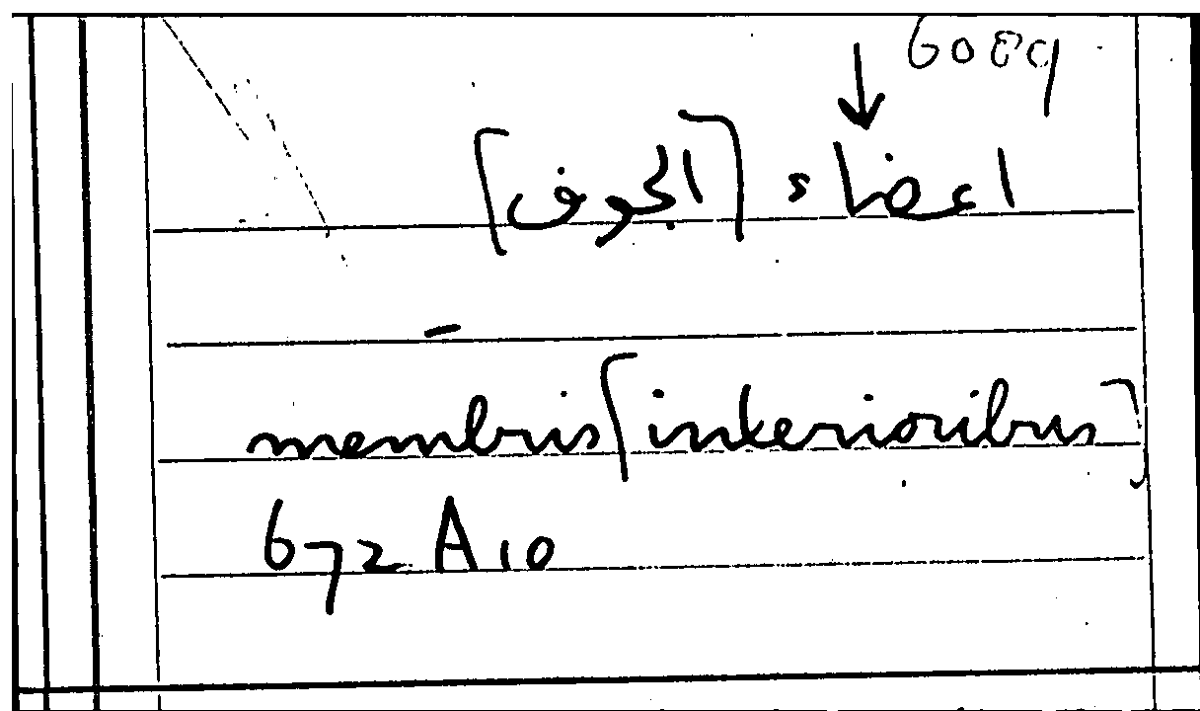 6089
اعضاء [الجوف]
membris [interioribus]
672 A 10